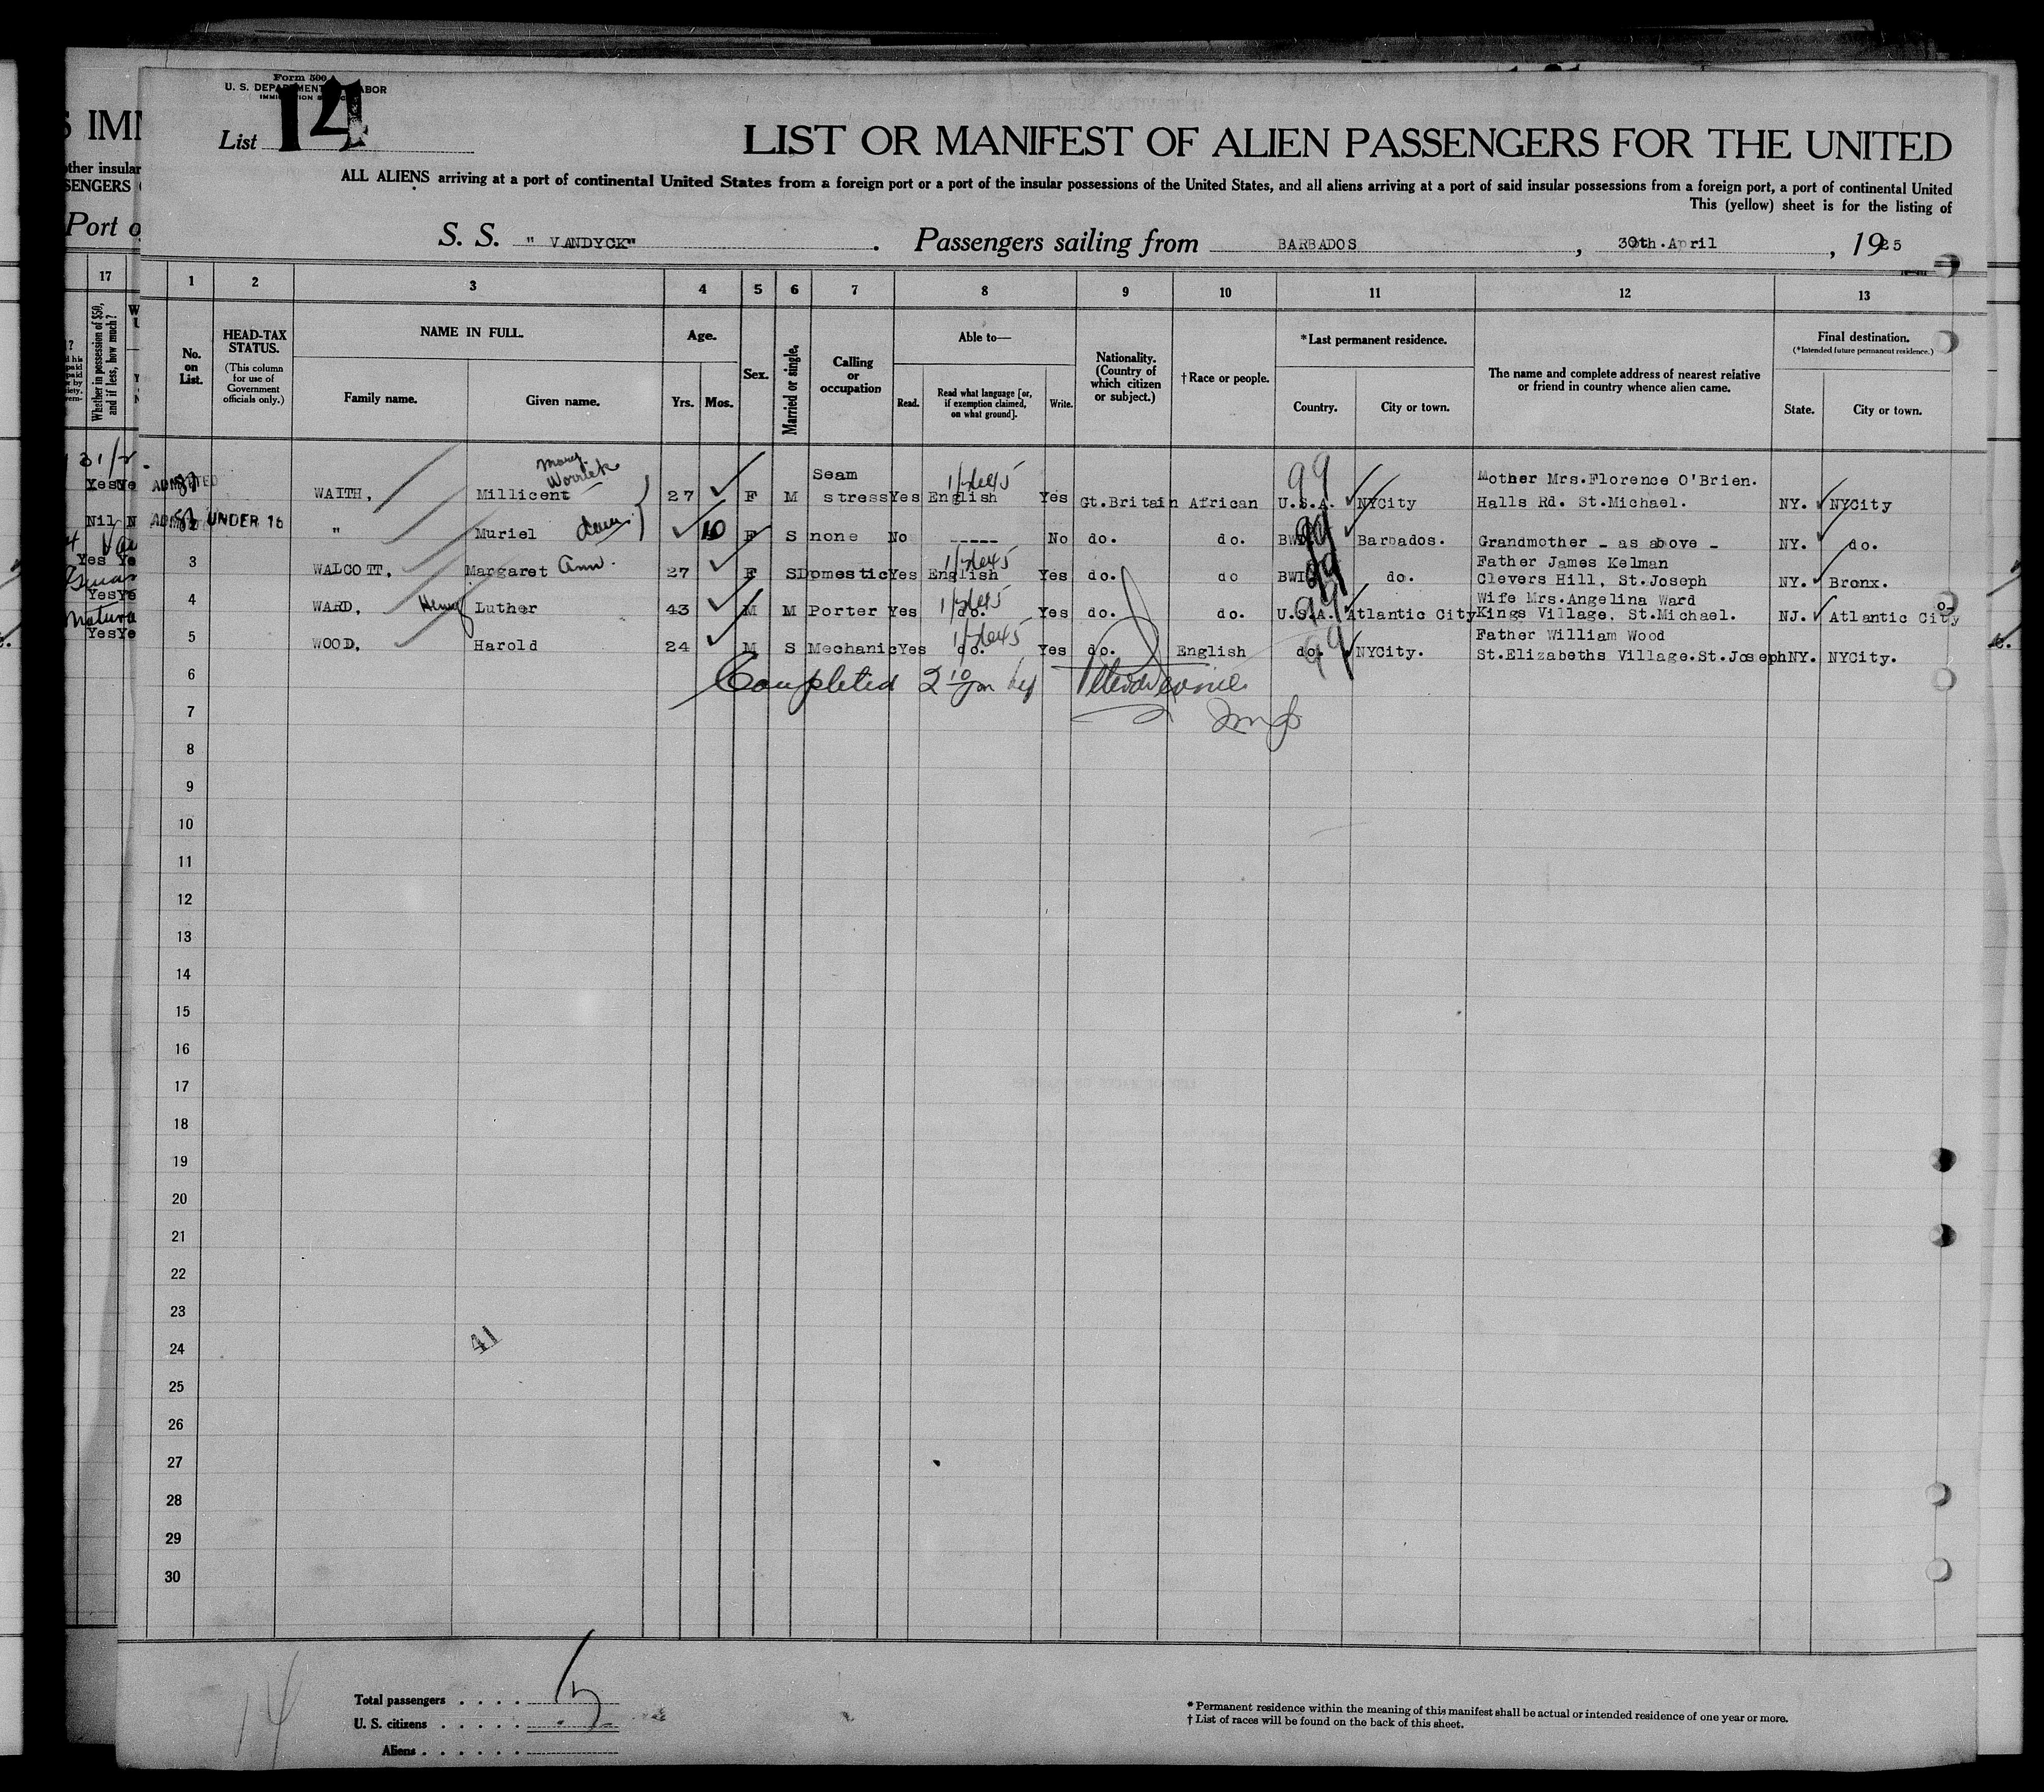 Form 500
U. S. DEPARTMENT OF LABOR
List 14
LIST OR MANIFEST OF ALIEN PASSENGERS FOR THE UNITED
ALL ALIENS arriving at a port of continental United States from a foreign port or a port of the insular possessions of the United States, and all aliens arriving at a port of said insular possessions from a foreign port, a port of continental United
This (yellow) sheet is for the listing of
S. S. " VANDYCK" . Passengers sailing from BARBADOS , 30th.April , 1925
17 1 2 3 4 5 6 7 8 9 10 11 12 13
Whether in possession of $50, and if less, how much?
No. on List.
HEAD-TAX STATUS. (This column for use of Government officials only.)
NAME IN FULL. Family name. Given name.
Age. Yrs. Mos.
Sex.
Married or single.
Calling or occupation
Able to— Read. Read what language [or, if exemption claimed, on what ground]. Write.
Nationality. (Country of which citizen or subject.)
†Race or people.
*Last permanent residence. Country. City or town.
The name and complete address of nearest relative or friend in country whence alien came.
Final destination. (*Intended future permanent residence.) State. City or town.
Mary
Seam Mother Mrs.Florence O'Brien.
WAITH, Millicent 27 F M stress Yes English Yes Gt.Britain African 99 U.S.A. NYCity Halls Rd. St.Michael. NY. NYCity
UNDER 16 " Muriel 10 F S none No ----- No do. do. BWI Barbados. Grandmother - as above - NY. do.
Father James Kelman
3 WALCOTT, Margaret Ann. 27 F S Domestic Yes English Yes do. do BWI do. Clevers Hill, St.Joseph NY. Bronx.
Wife Mrs.Angelina Ward
4 WARD, Henry Luther 43 M M Porter Yes do. Yes do. do. U.S.A. Atlantic City Kings Village, St.Michael. NJ. Atlantic City
Father William Wood
5 WOOD, Harold 24 M S Mechanic Yes do. Yes do. English do. 99 NYCity. St.Elizabeths Village.St.Joseph NY. NYCity.
6 Completed 2 10 pm by
7
8
9
10
11
12
13
14
15
16
17
18
19
20
21
22
23
24 41
25
26
27
28
29
30
14
Total passengers . . . . 5
U. S. citizens . . . . .
Aliens . . . . . .
* Permanent residence within the meaning of this manifest shall be actual or intended residence of one year or more.
† List of races will be found on the back of this sheet.